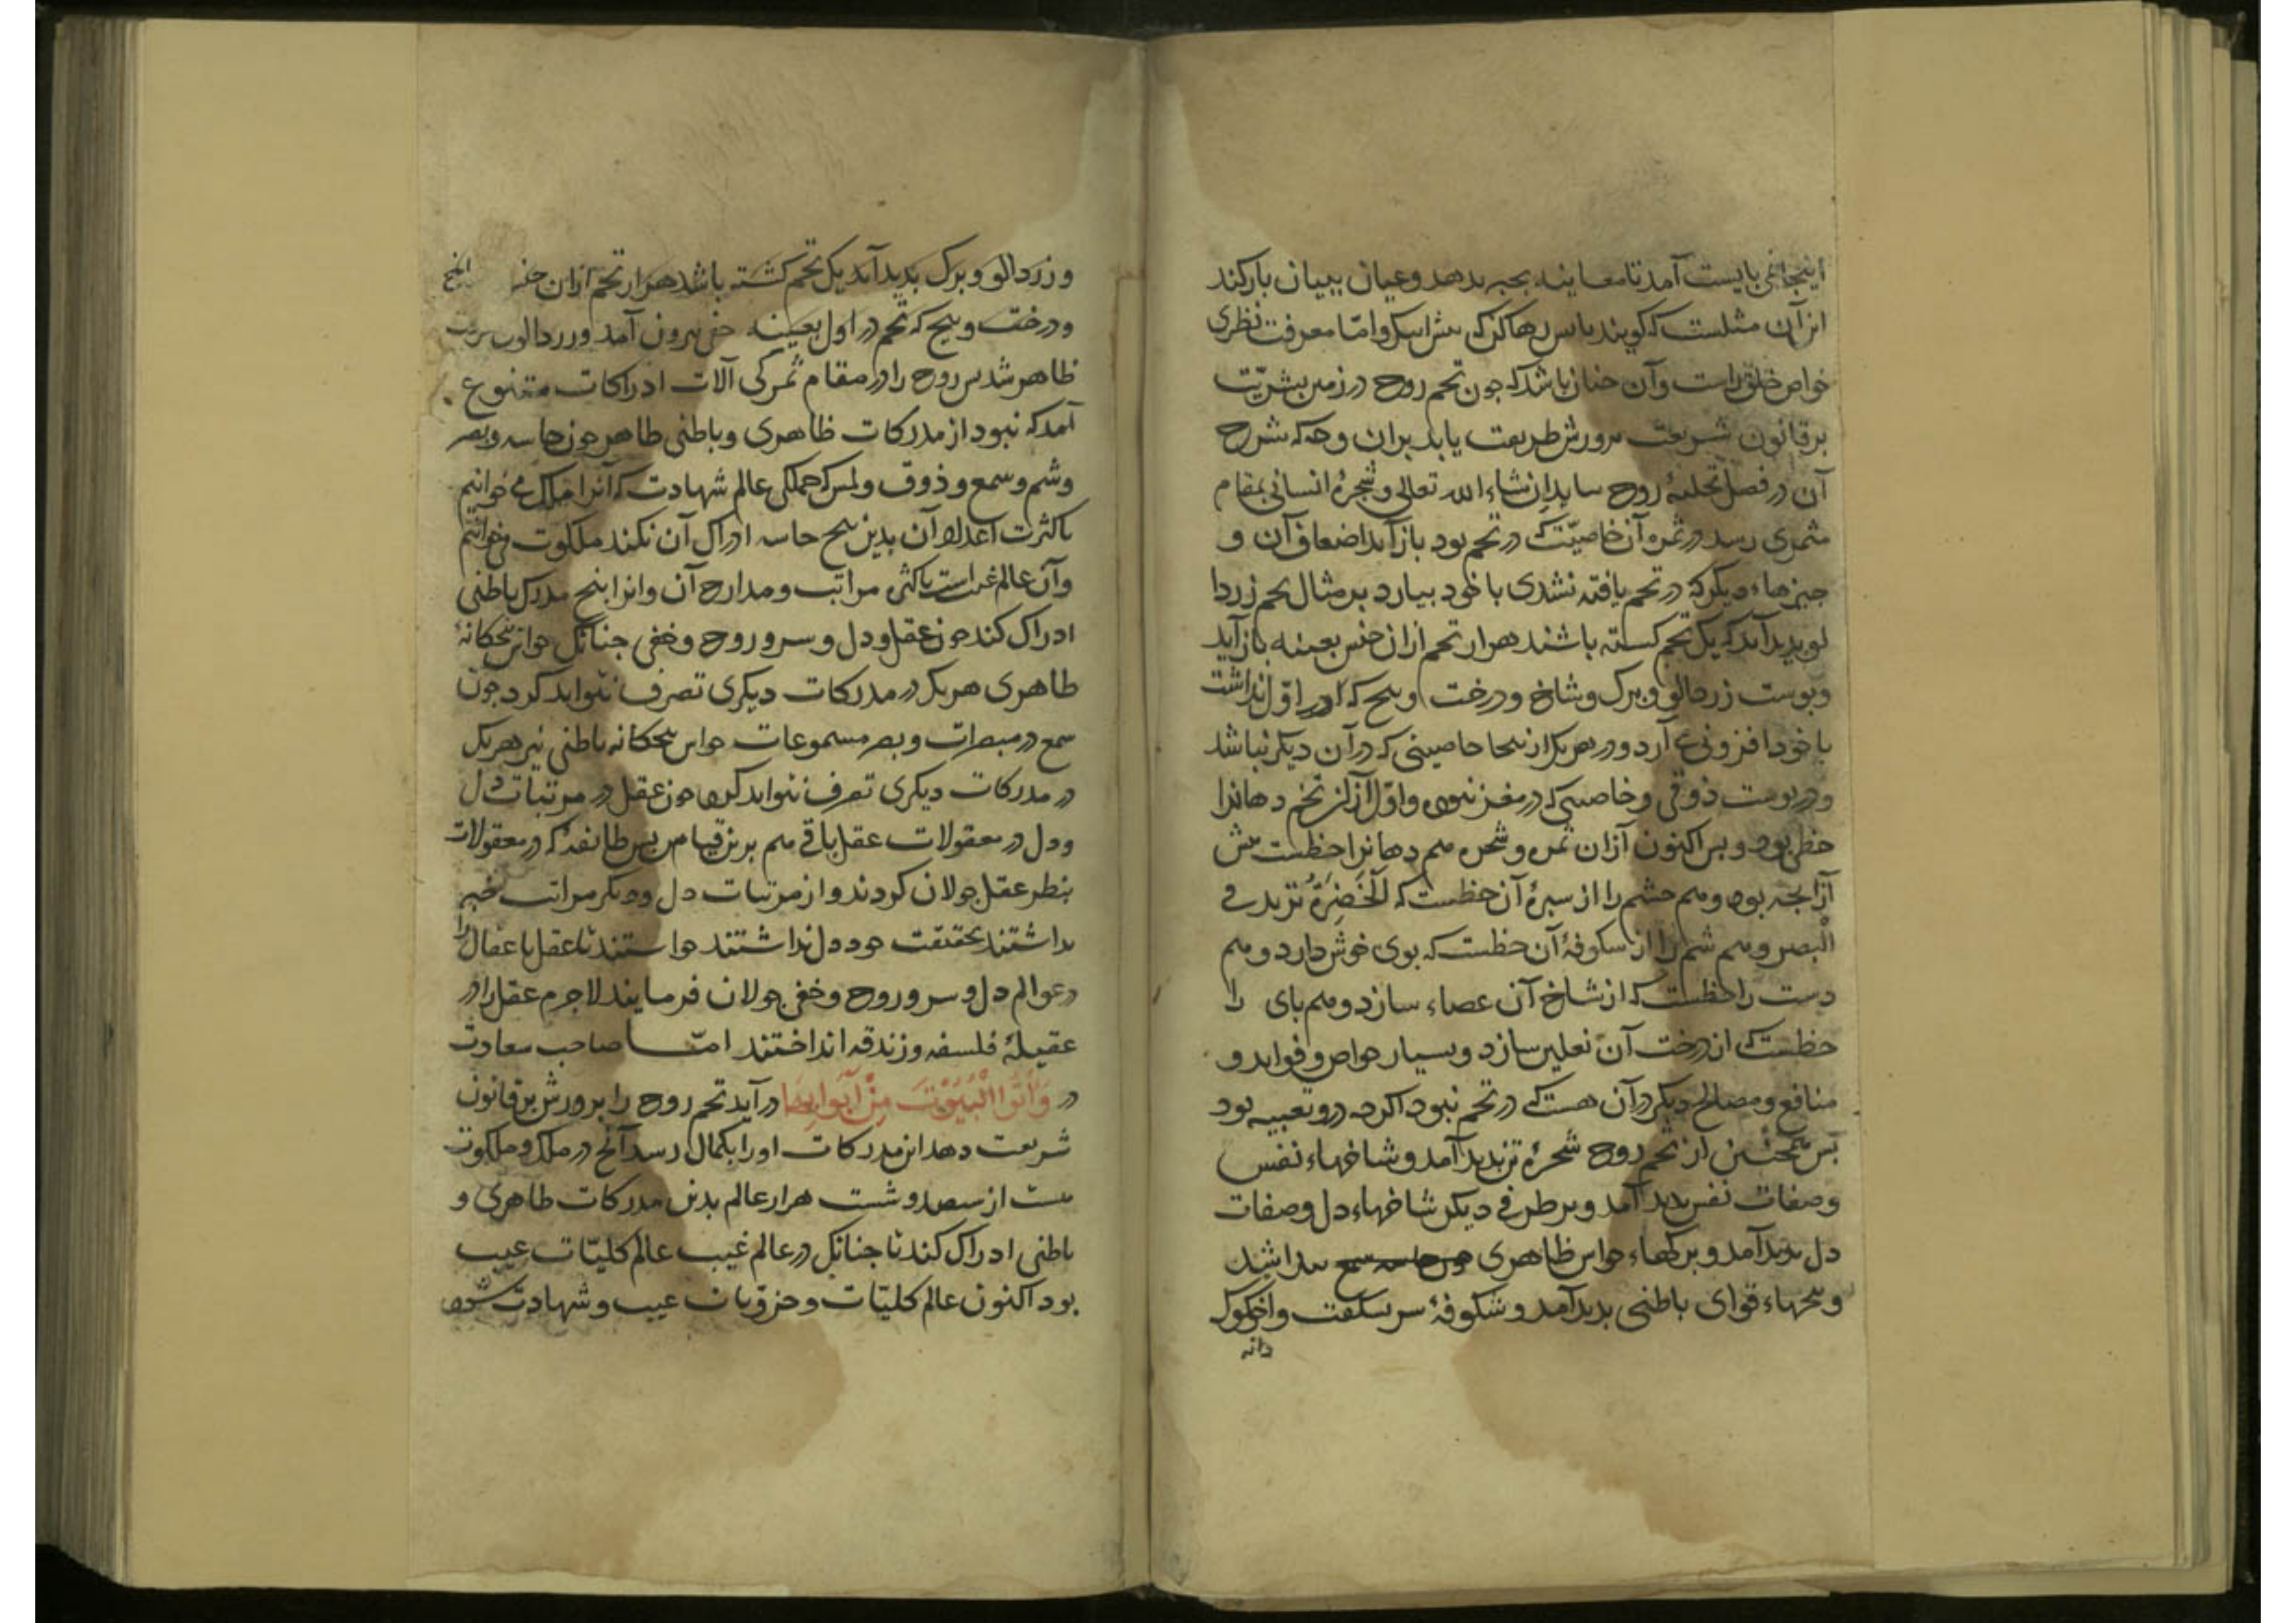 اینجا می بایست آمد تا معاینه بجبه بدهد و عیان ببیان بازکند
از آن مثلست که کویند باس رها کن که اما معرفت نظری
خواص خلق راست و آن جنان باشد که جون تخم روح در زمین بشریّت
بر قانون شریعت پرورش طریعت یابد بران وجه که شرح
آن در فصل تحلیهٔ روح بیاید ان شاء الله تعالی و شجرهٔ انسانی بمقام
مثمری رسد در ثمره آن خاصیّت که در تخم بود باز آید اضعاف آن و
جیزهاء دیکر که در تخم یافته نشدی با خود بیارد بر مثال تخم زردا
لو بدید آید که یک تخم کشته باشند هزار تخم از ان جنس بعینه باز آید
وبوست زردالو و برک و شاخ و درخت و بیخ که در اوّل نداشت
با خود افزونی آرد و در هر یک از ینجا خاصیتی که در آن دیکر نباشد
و در بوست ذوقی و خاصیتی که در مغز نبود و اوّل از آن تخم دهانرا
حظی بود و بس اکنون از ان ثمره و شجره هم دهانرا حظیست بیش
از آنجه بود و هم جشم را از سبزهٔ آن حظیست که اَلْخَضِرَةُ تزید فی
الْبصر و هم شم را از شکوفهٔ آن حظیست که بوی خوش دارد و هم
دست را حظیست که از شاخ آن عصاء سازد و هم بای را
حظیست که از درخت آن نعلین سازد و بسیار خواص و فواید و
منافع و مصالح دیکر در آن هست که در تخم نبود اکرجه درو تعبیه بود
بس همجنین از تخم روح شجرهٔ تن بدید آمد و شاخهاء نفس
وصفات نفس بدید آمد و بر طرفی دیکر شاخهاء دل و صفات
دل بدید آمد و برکهاء حواس ظاهری بیدا شد
و بیخهاء قوای باطنی بدید آمد و شکوفهٔ سر بشکفت و اخکوک
دانه
و زردالو و برک بدید آید یک تخم کشته باشد هزار تخم از ان جنس
و درخت و بیخ که تخم در اول بعینه خفی بیرون آمد و زردالو
ظاهر شد بس روح را در مقام ثمرکی آلات ادراکات متنوع
آمد که نبود از مدرکات ظاهری و باطنی ظاهر جون حاسه و بصر
و شم و سمع و ذوق و لمس که جملکی عالم شهادت که آنرا ملک می خوانیم
باکثرت اعداد آن بدین بنج حاسه ادراک آن نکند ملکوت می خوانیم
و آن عالم غیب است باکثری مراتب و مدارج آن و انرا بنج مدرک باطنی
ادراک کند جون عقل و دل و سر و روح و خفی جنانک حواس بنجکانهٔ
ظاهری هر یک در مدرکات دیکری تصرف نتواند کرد جون
سمع در مبصرات و بصر مسموعات حواس بنجکانه باطنی نیز هر یک
در مدرکات دیکری تصرف نتواند کرد جون عقل در مرتبات دل
و دل در معقولات عقل باقی هم برین قیاس بس طایفهٔ که در معقولات
بنظر عقل جولان کردند و از مرتبات دل و دیکر مراتب خبر
نداشتند بحقیقت خود دل نداشتند خواستند تا عقل با عقال را
در عوالم دل و سر و روح و خفی جولان فرمایند لاجرم عقل را در
عقیلهٔ فلسفه و زندقه انداختند امّا صاحب سعادت
در وَأْتُوا الْبُیُوتَ مِنْ أَبْوَابِهَا در آید تخم روح را برورش بر قانون
شریعت دهد این مدرکات او را بکمال رسد آنج در ملک و ملکوت
هست از سیصد و شست هزار عالم بدین مدرکات ظاهری و
باطنی ادراک کند تا جنانک در عالم غیب عالم کلیّات غیب
بود اکنون عالم کلیّات و جزویات غیب و شهادت شود